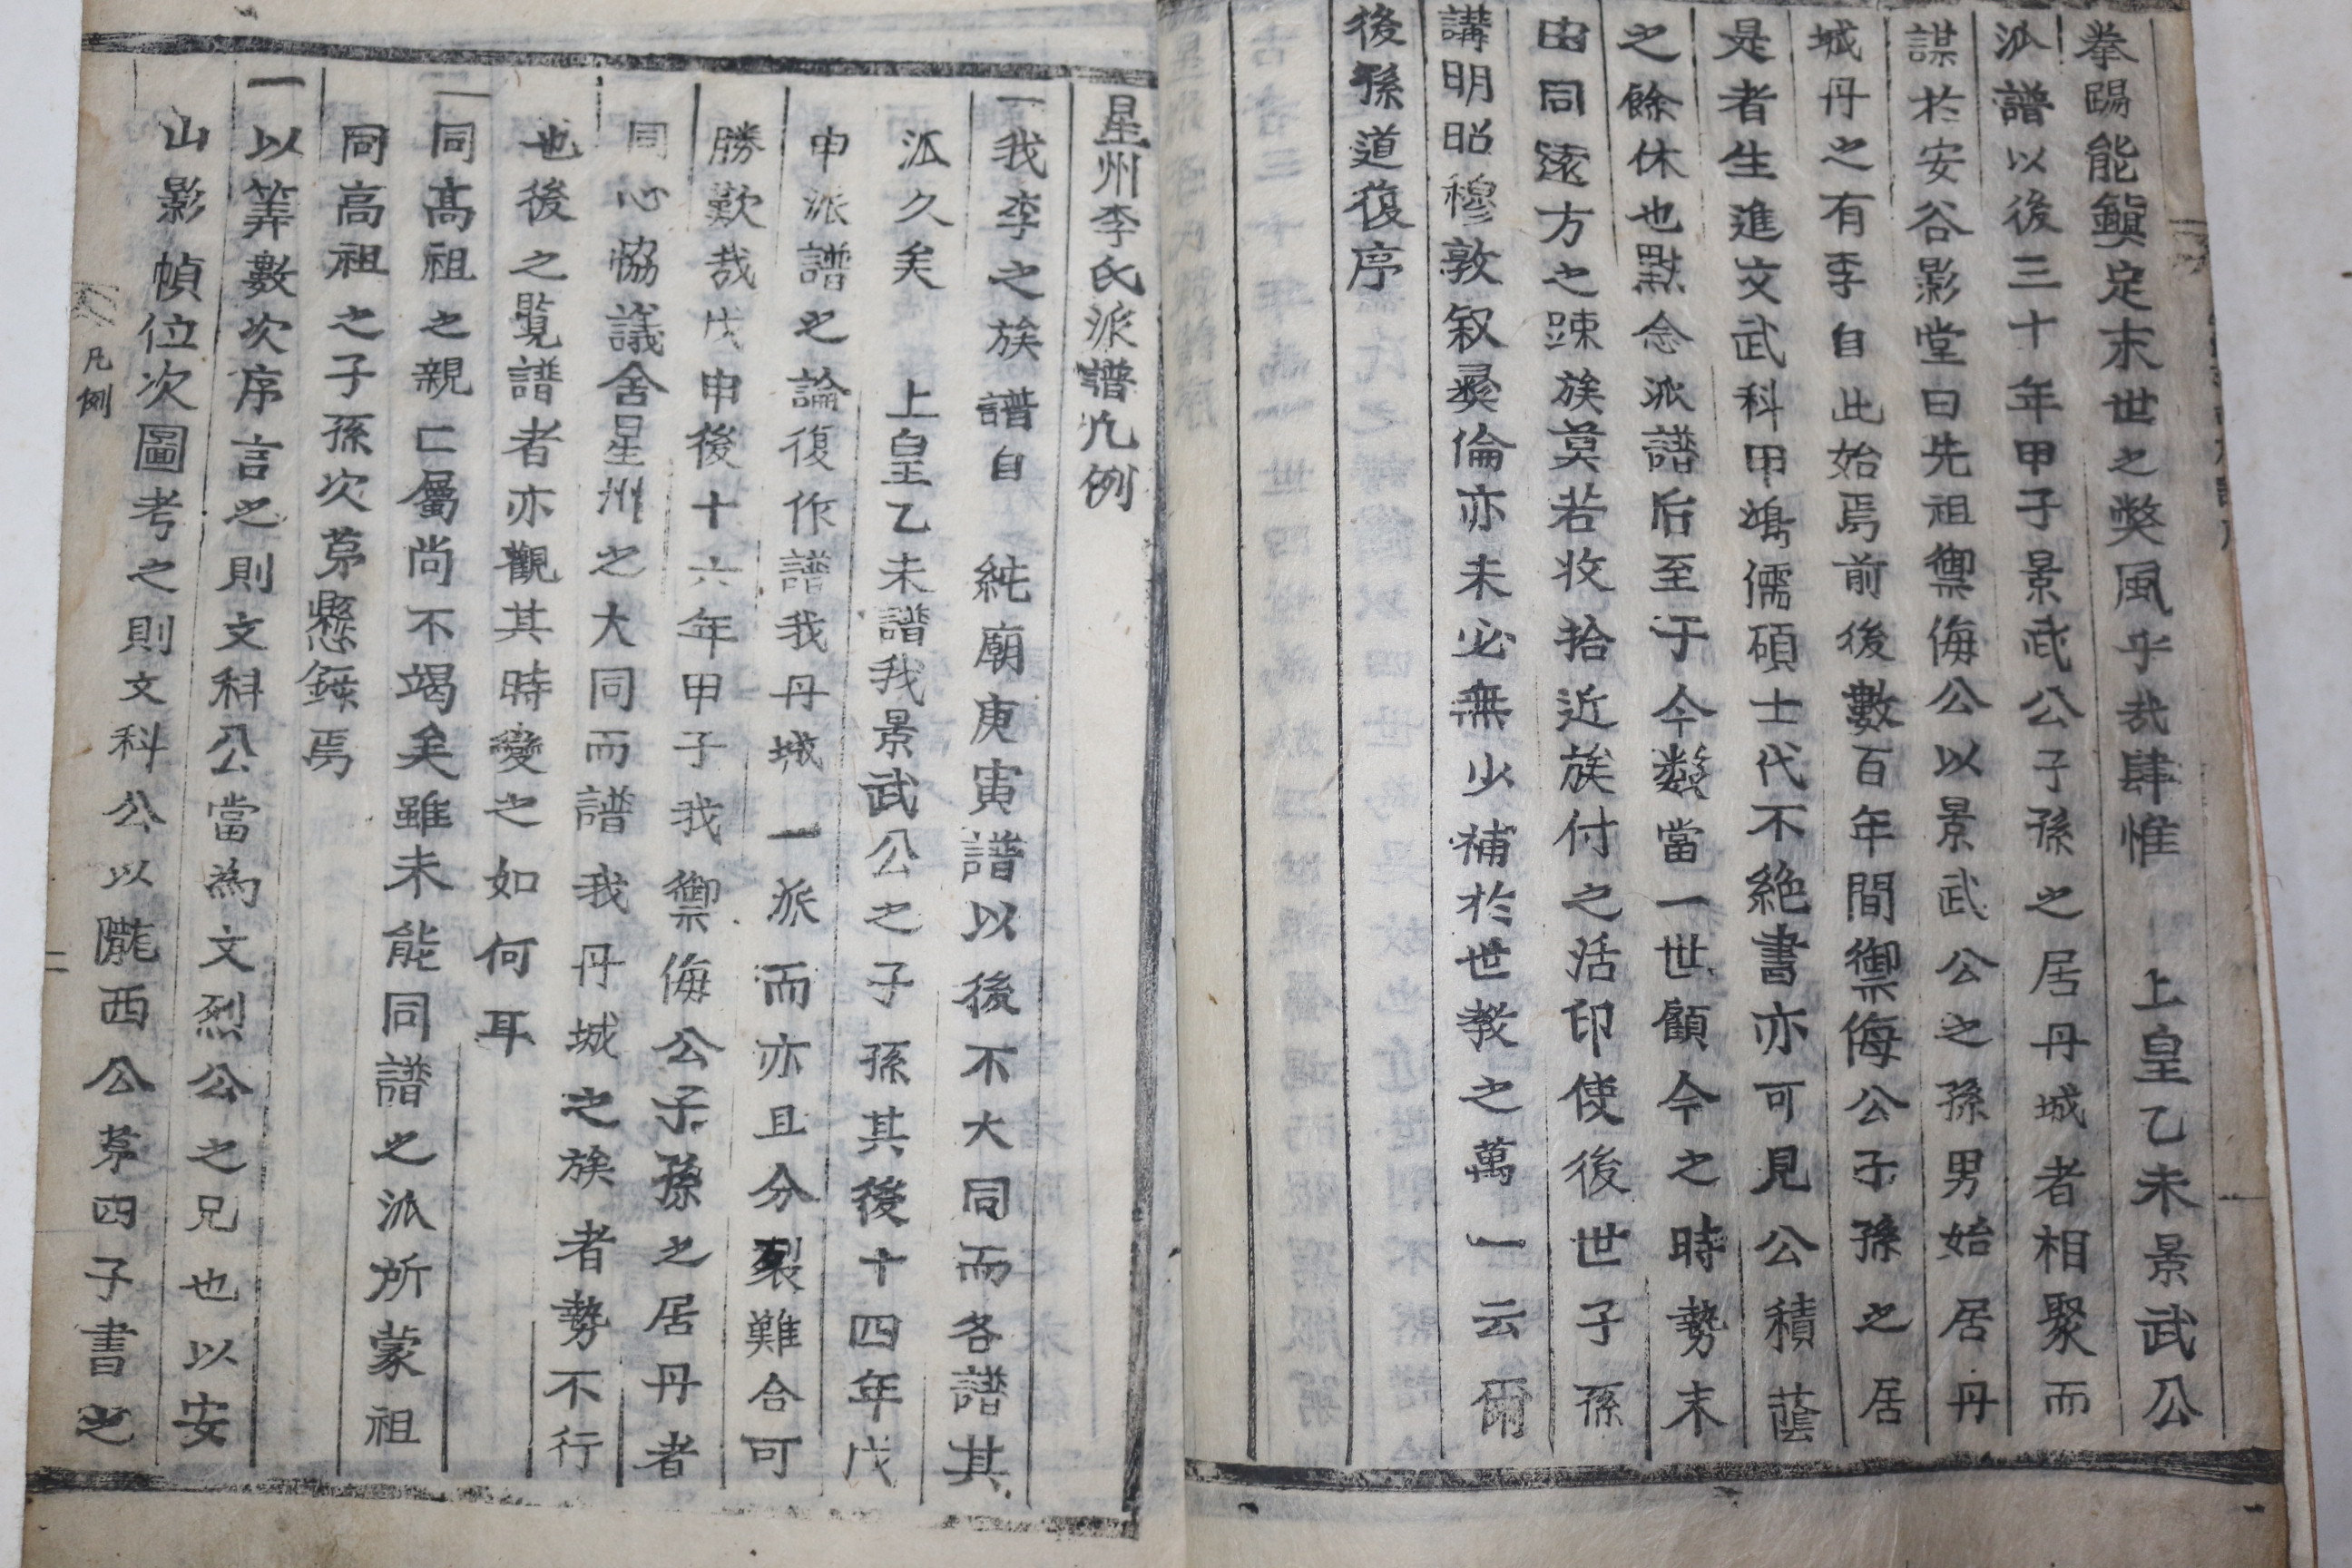 拳踢能鎭定末世之獘風乎哉肆惟 上皇乙未景武公
派譜以後三十年甲子景武公子孫之居丹城者相聚而
謀於安谷影堂曰先祖禦侮公以景武公之孫男始居丹
城丹之有李自此始焉前後數百年間禦侮公子孫之居
是者生進文武科甲鴻儒碩士代不絶書亦可見公積蔭
之餘休也點念派譜后至于今数當一世顧今之時勢末
由同遠方之踈族莫若收拾近族付之活印使後世子孫
講明昭穆敦叙彛倫亦未必無少補於世教之萬一云爾
後孫道復序
星州李氏派譜凡例
一我李之族譜自 純廟庚寅譜以後不大同而各譜其
派久矣 上皇乙未譜我景武公之子孫其後十四年戊
申派譜之論復作譜我丹城一派而亦且分裂難合可
勝歎哉戊申後十六年甲子我禦侮公子孫之居丹者
同心協議舍星州之大同而譜我丹城之族者勢不行
也後之覧譜者亦觀其時變之如何耳
一同髙祖之親亡屬尚不竭矣雖未能同譜之派所蒙祖
同高祖之子孫次茅懸錄焉
一以筭數次序言之則文科公當為文烈公之兄也以安
山影幀位次圖考之則文科公以隴西公茅四子書之
凡例
二